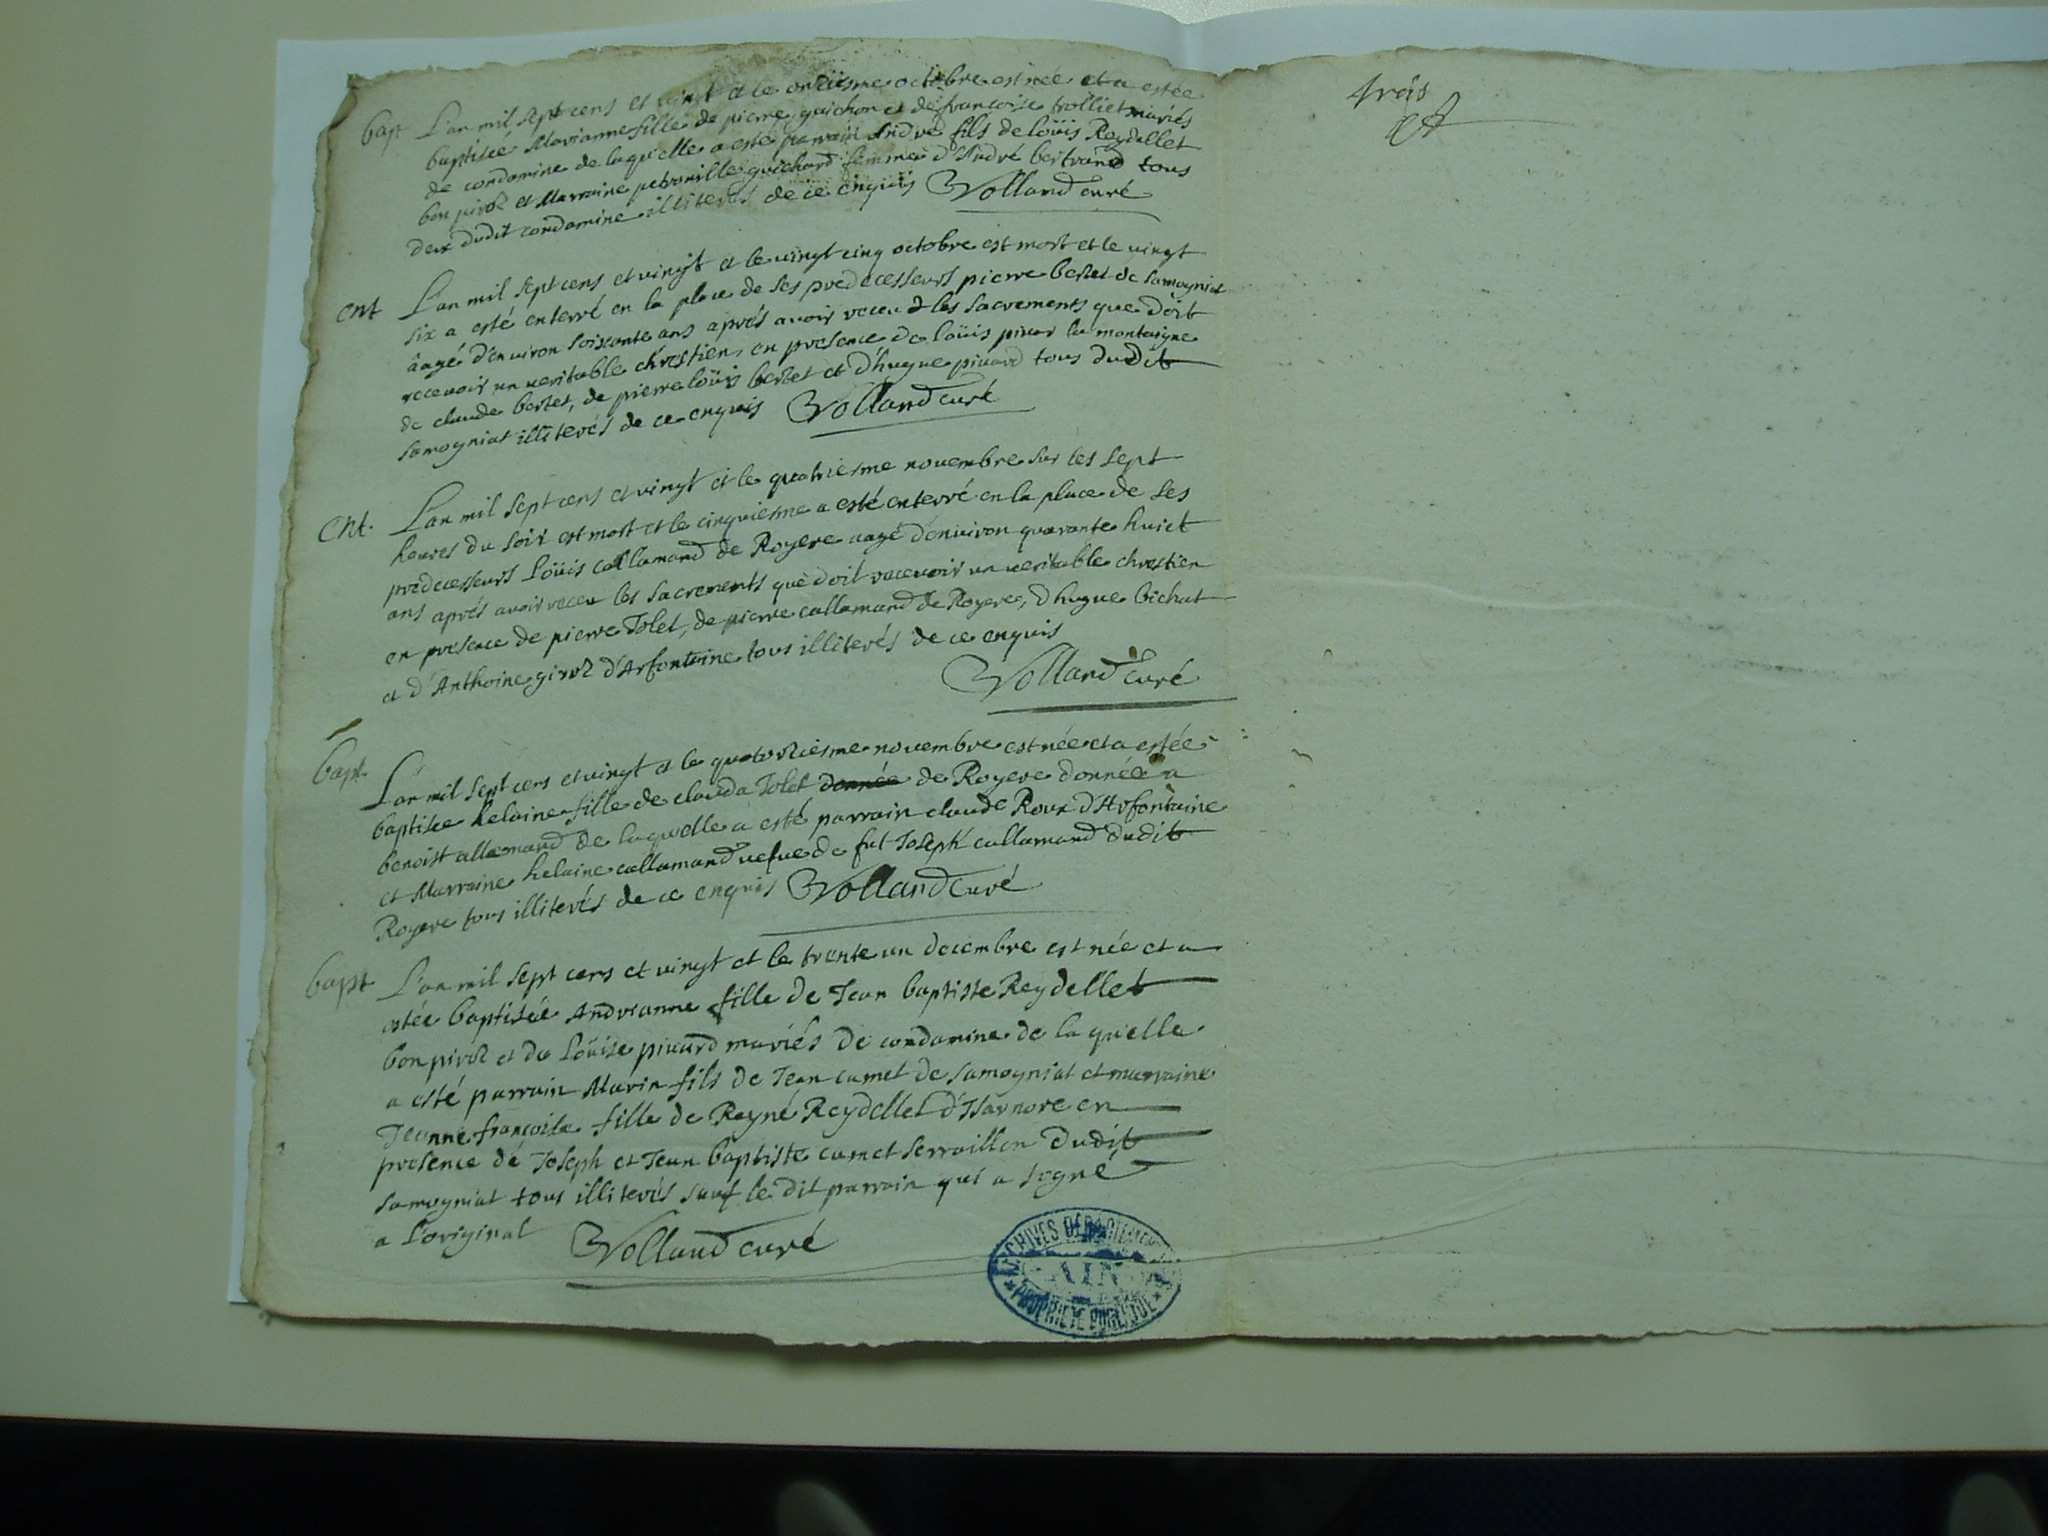 bapt L'an mil sept cens et vingt et le onziesme octobre est née et a estée
baptisée Marianne fille de pierre guichon et de francoise trolliet mariés
de condamine de laquelle a esté parrain André fils de loüis Reydellet
bon pirod et Marraine petronille guichard femme d'André bertrand tous
deux dudit condamine illiterés de ce enquis Volland curé
ent L'an mil sept cens et vingt et le vingt cinq octobre est mort et le vingt
six a esté enterré en la place de ses predecesseurs pierre bertet de samogniat
aagé d'environ soixante ans aprés avoir receu les sacrements que doit
recevoir un veritable chrestien, en presence de loüis la montaigne
de claude bertet, de pierre loüis bertet et d'hugue pivard tous dudit
samogniat illiterés de ce enquis Volland curé
ent. L'an mil sept cens et vingt et le quatriesme novembre sur les sept
heures du soir est mort et le cinquiesme a esté enterré en la place de ses
predecesseurs Loüis callamand de Royere aagé d'environ quarante huict
ans aprés avoir receu les sacrements que doit recevoir un veritable chrestien
en presence de pierre Tolet, de pierre callamand de Royere, d'hugue bichat
et d'Anthoine girod d'Arfontaine tous illiterés de ce enquis
Volland curé
bapt. L'an mil sept cens et vingt et le quatorziesme novembre est née et a estée
baptisée helaine fille de clauda Tolet donnée de Royere donnée a
benoist allemand de laquelle a esté parrain claude Roux d'Arfontaine
et Marraine helaine callamand vefve de fut Joseph callamand dudit
Royere tous illiterés de ce enquis Volland curé
bapt L'an mil sept cens et vingt et le trente un decembre est née et a
estée baptisée Andrianne fille de Jean baptiste Reydellet
bon pirod et de Loüise pivard mariés de condamine de la quelle
a esté parrain Marin fils de Jean camet de samogniat et marraine
Jeanne françoise fille de Reyné Reydellet d'Isarnore en
presence de Joseph et Jean baptiste camet serraillon dudit
samogniat tous illiterés sauf le dit parrain qui a signé
a l'original Volland curé
ARCHIVES DÉPARTEMENTALES
AIN
PROPRIÉTÉ PUBLIQUE
trois